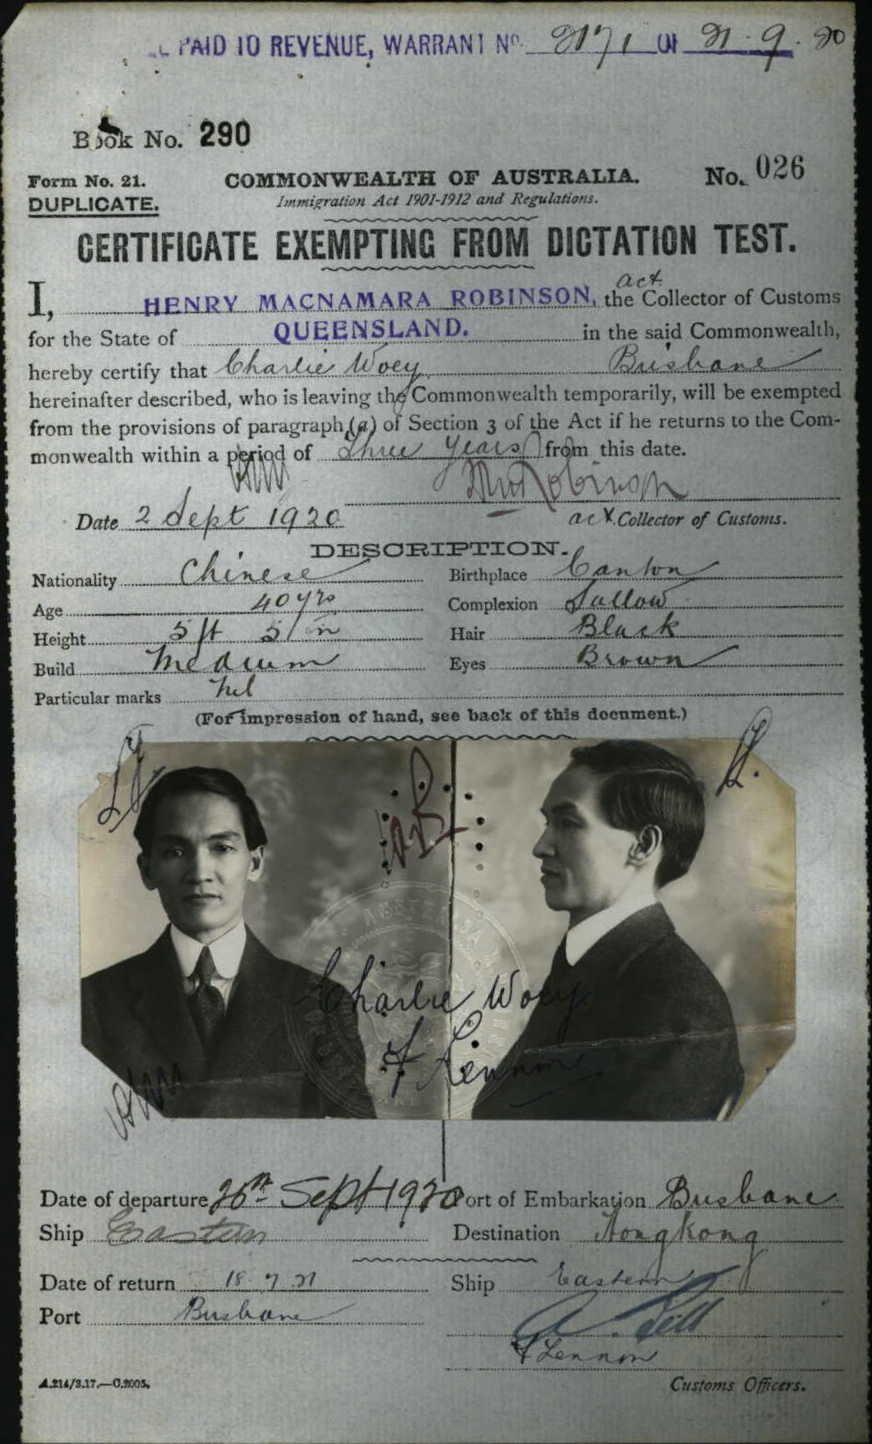 PAID TO REVENUE, WARRANT No. 2171 OF 21.9.20
Book No. 290
Form No. 21. COMMONWEALTH OF AUSTRALIA. No. 026
DUPLICATE. Immigration Act 1901-1912 and Regulations.
CERTIFICATE EXEMPTING FROM DICTATION TEST.
act
I, HENRY MACNAMARA ROBINSON, the Collector of Customs
for the State of QUEENSLAND. in the said Commonwealth,
hereby certify that Charlie Woey Brisbane
hereinafter described, who is leaving the Commonwealth temporarily, will be exempted
from the provisions of paragraph (a) of Section 3 of the Act if he returns to the Com-
monwealth within a period of Three years from this date.
HM Robinson
Date 2 Sept 1920 act Collector of Customs.
DESCRIPTION.
Nationality Chinese Birthplace Canton
Age 40 yrs Complexion Sallow
Height 5 ft 5 in Hair Black
Build Medium Eyes Brown
Particular marks Nil
(For impression of hand, see back of this document.)
Charlie Woey
Date of departure 26th Sept 1920 Port of Embarkation Brisbane
Ship Eastern Destination Hongkong
Date of return 18 7 21 Ship Eastern
Port Brisbane
F Lennon
A.214/3.17.—C.2005. Customs Officers.